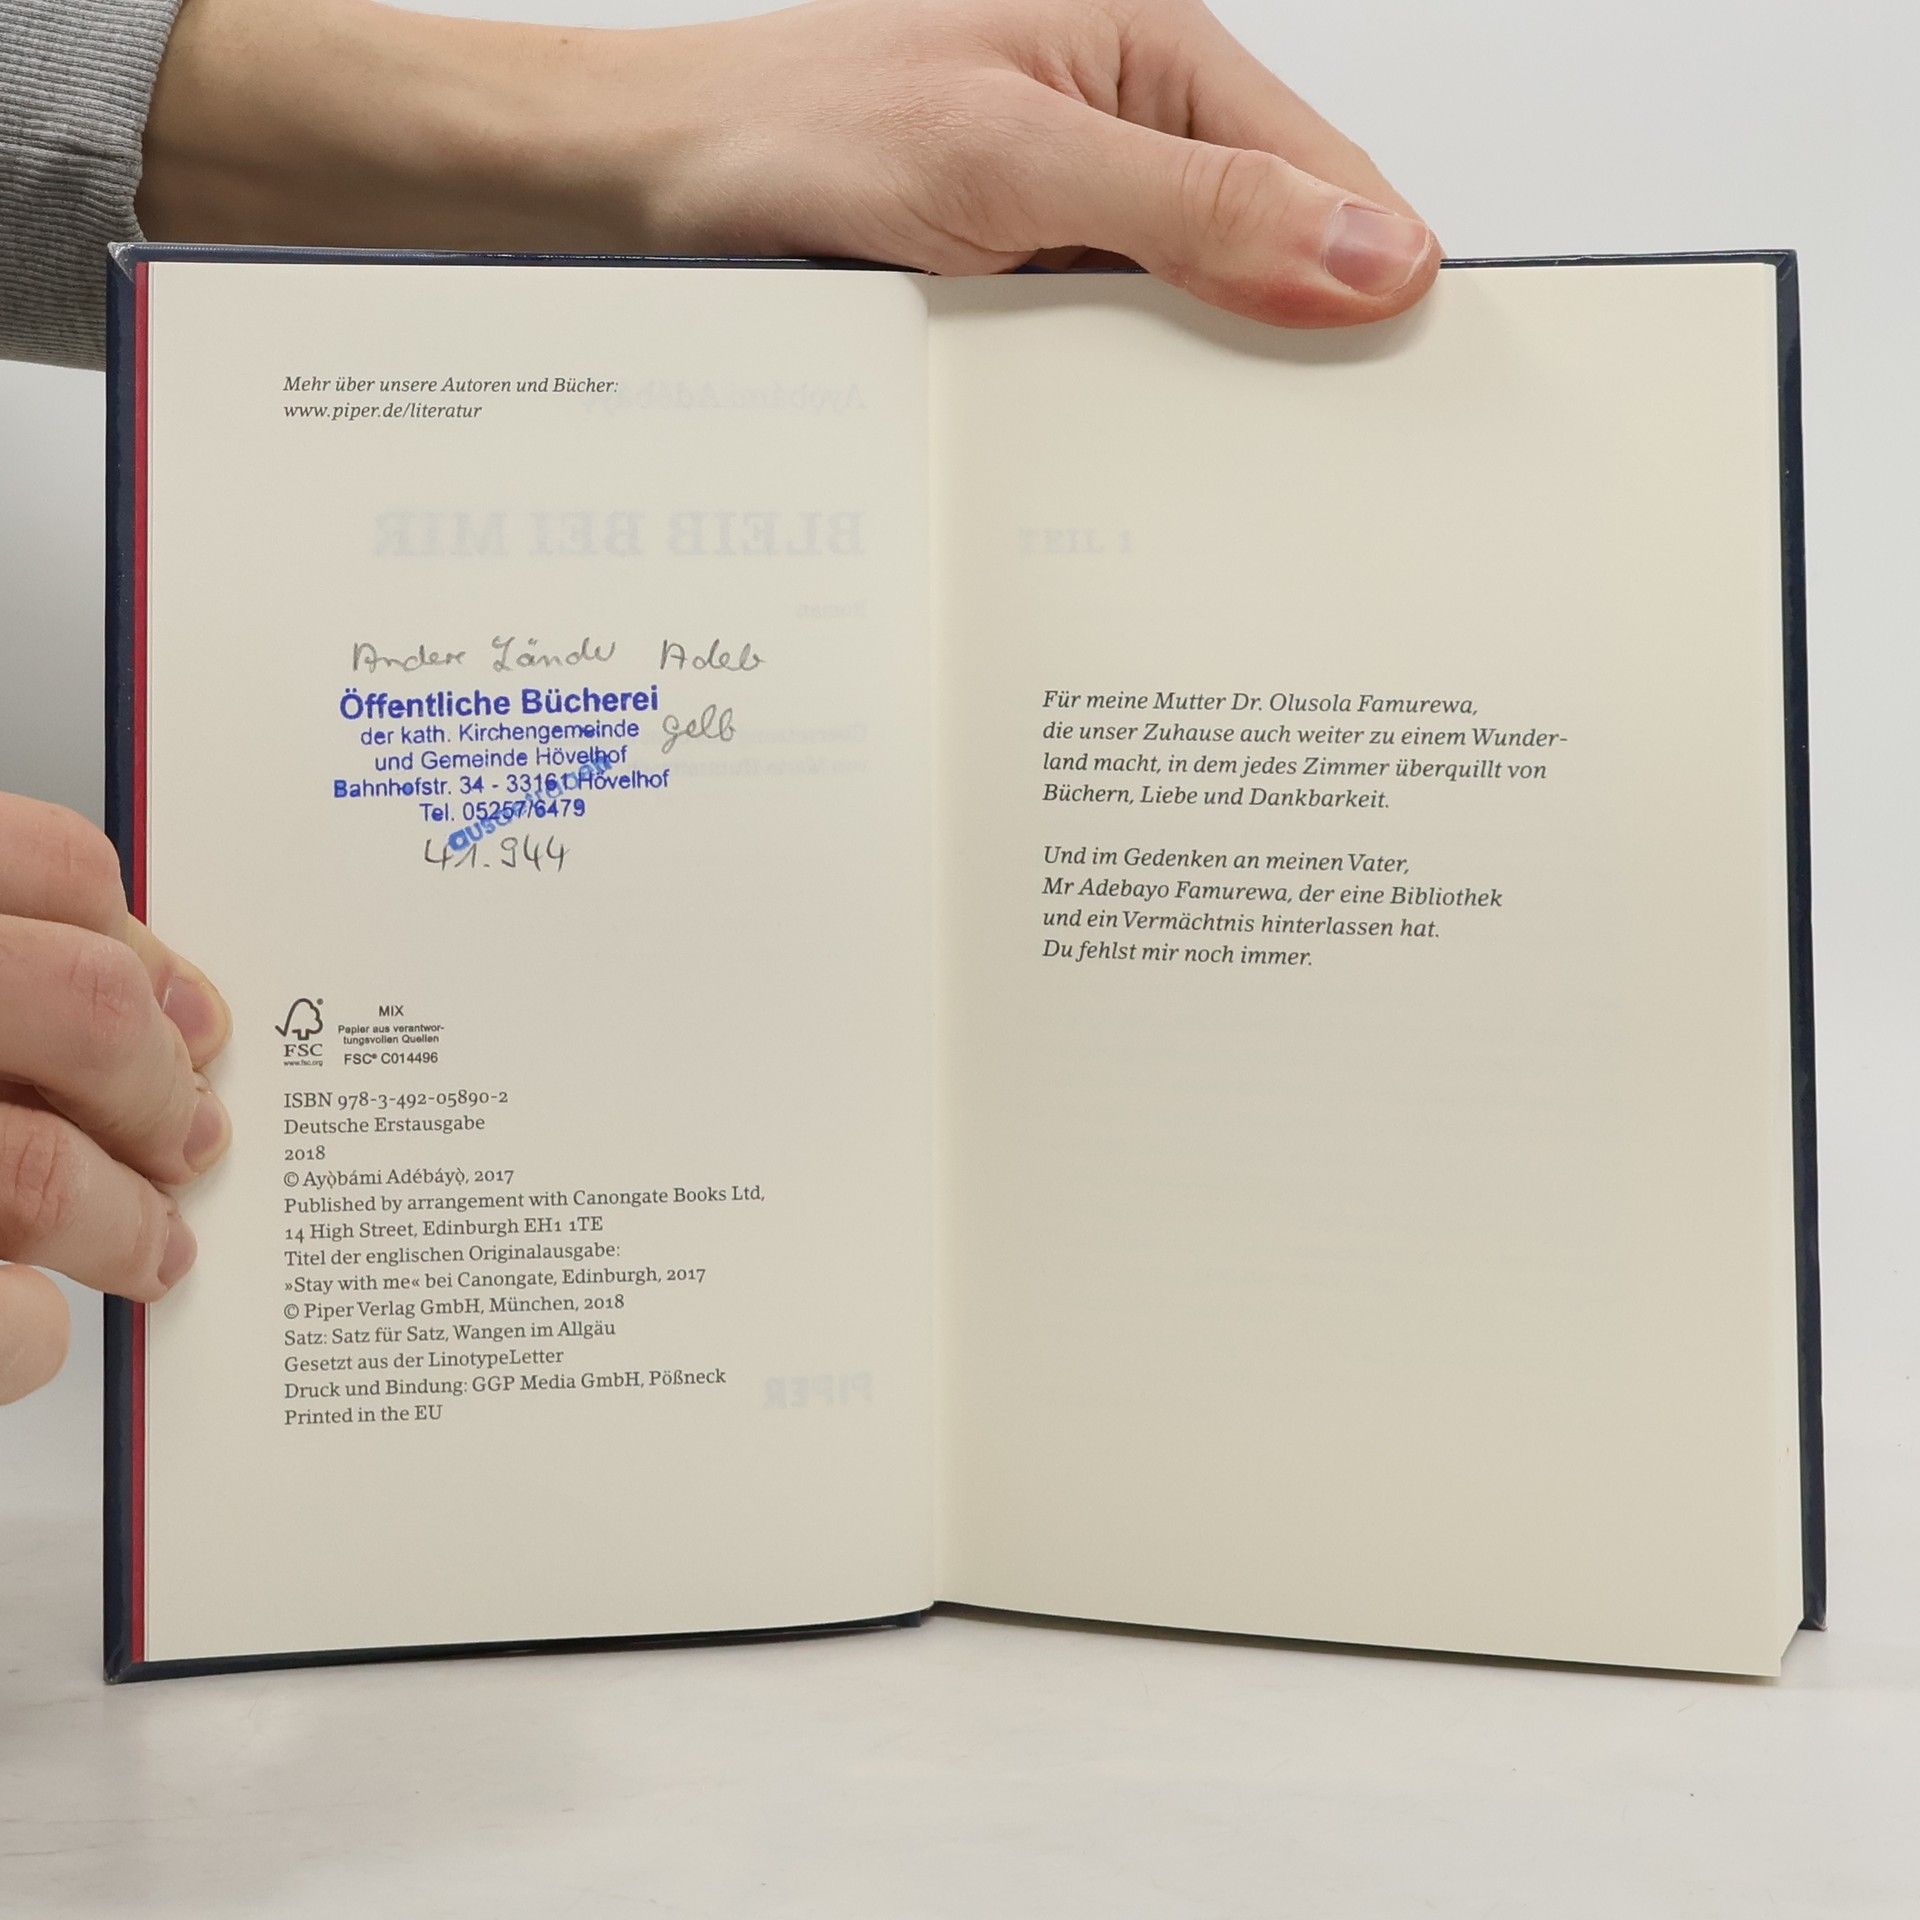 Mehr über unsere Autoren und Bücher:
www.piper.de/literatur
BLEIB BEI MIR
Andere Länder Adeb
Öffentliche Bücherei
der kath. Kirchengemeinde
gelb
und Gemeinde Hövelhof
Bahnhofstr. 34 - 33161 Hövelhof
Tel. 05257/6479
ausgetragen
41.944
MIX
Papier aus verantwor-
tungsvollen Quellen
FSC® C014496
FSC
www.fsc.org
ISBN 978-3-492-05890-2
Deutsche Erstausgabe
2018
© Ayọ̀bámi Adébáyọ̀, 2017
Published by arrangement with Canongate Books Ltd,
14 High Street, Edinburgh EH1 1TE
Titel der englischen Originalausgabe:
»Stay with me« bei Canongate, Edinburgh, 2017
© Piper Verlag GmbH, München, 2018
Satz: Satz für Satz, Wangen im Allgäu
Gesetzt aus der LinotypeLetter
Druck und Bindung: GGP Media GmbH, Pößneck
Printed in the EU
PIPER
TEIL 1
Für meine Mutter Dr. Olusola Famurewa,
die unser Zuhause auch weiter zu einem Wunder-
land macht, in dem jedes Zimmer überquillt von
Büchern, Liebe und Dankbarkeit.
Und im Gedenken an meinen Vater,
Mr Adebayo Famurewa, der eine Bibliothek
und ein Vermächtnis hinterlassen hat.
Du fehlst mir noch immer.